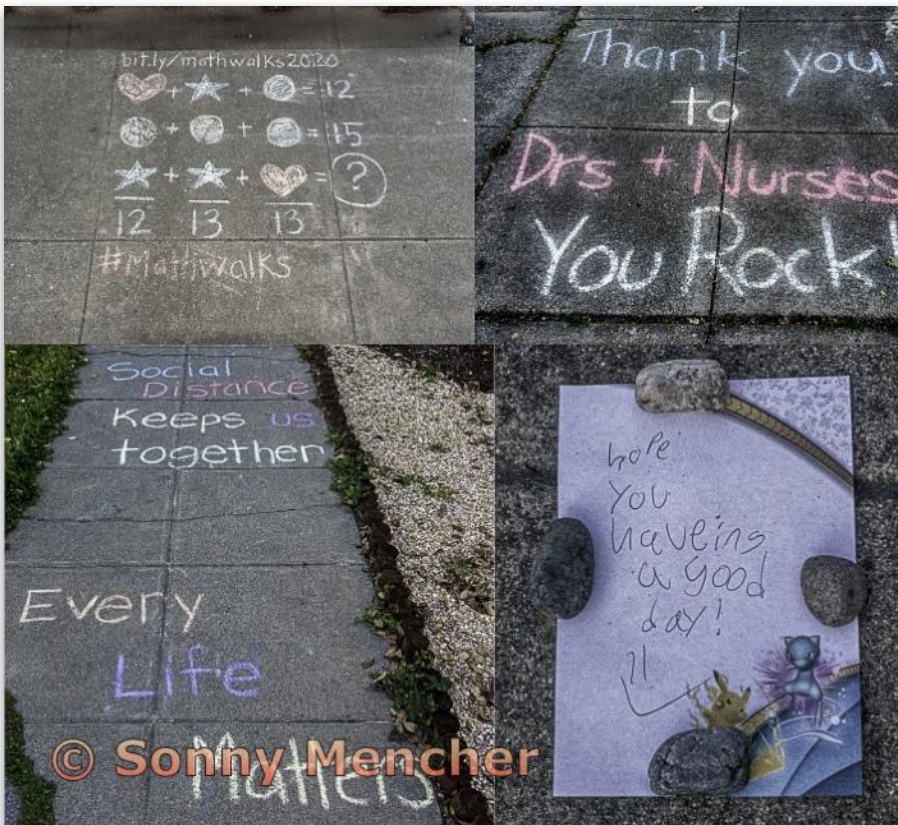 bit.ly/mathwalks2020
+ + = 12
+ + = 15
+ + = ?
12 13 13
#Mathwalks
Thank you
to
Drs + Nurses
You Rock!
Social
Distance
Keeps us
together
Every
Life
Matters
© Sonny Mencher
hope
You
haveing
a good
day!